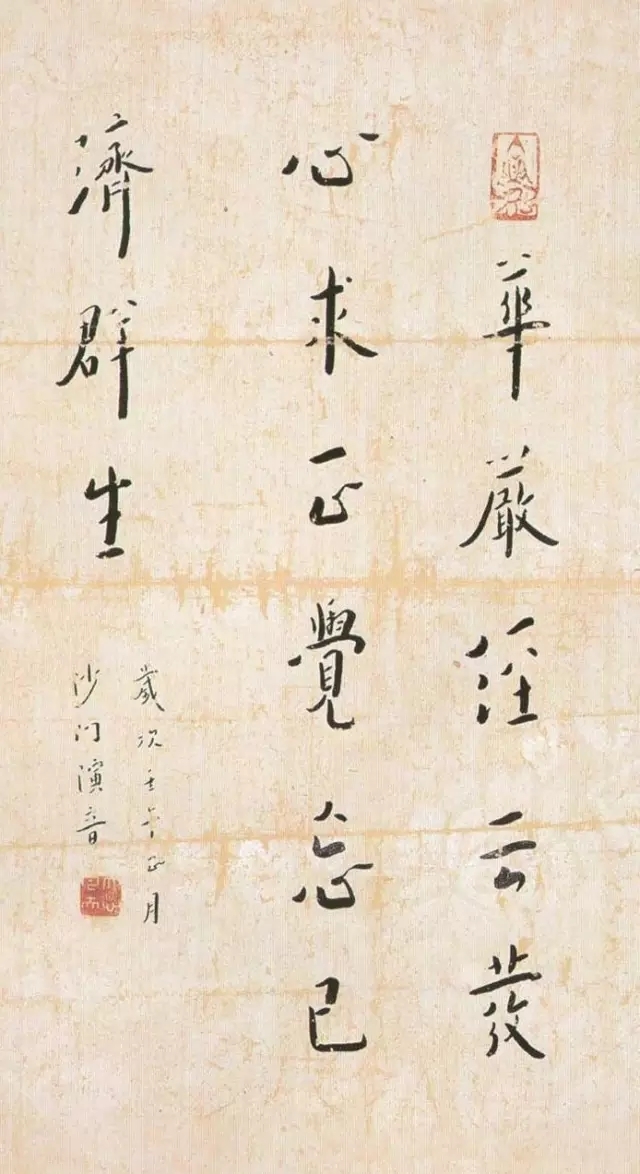 華嚴經云發
心求正覺忘己
濟群生
歲次壬午正月
沙門演音